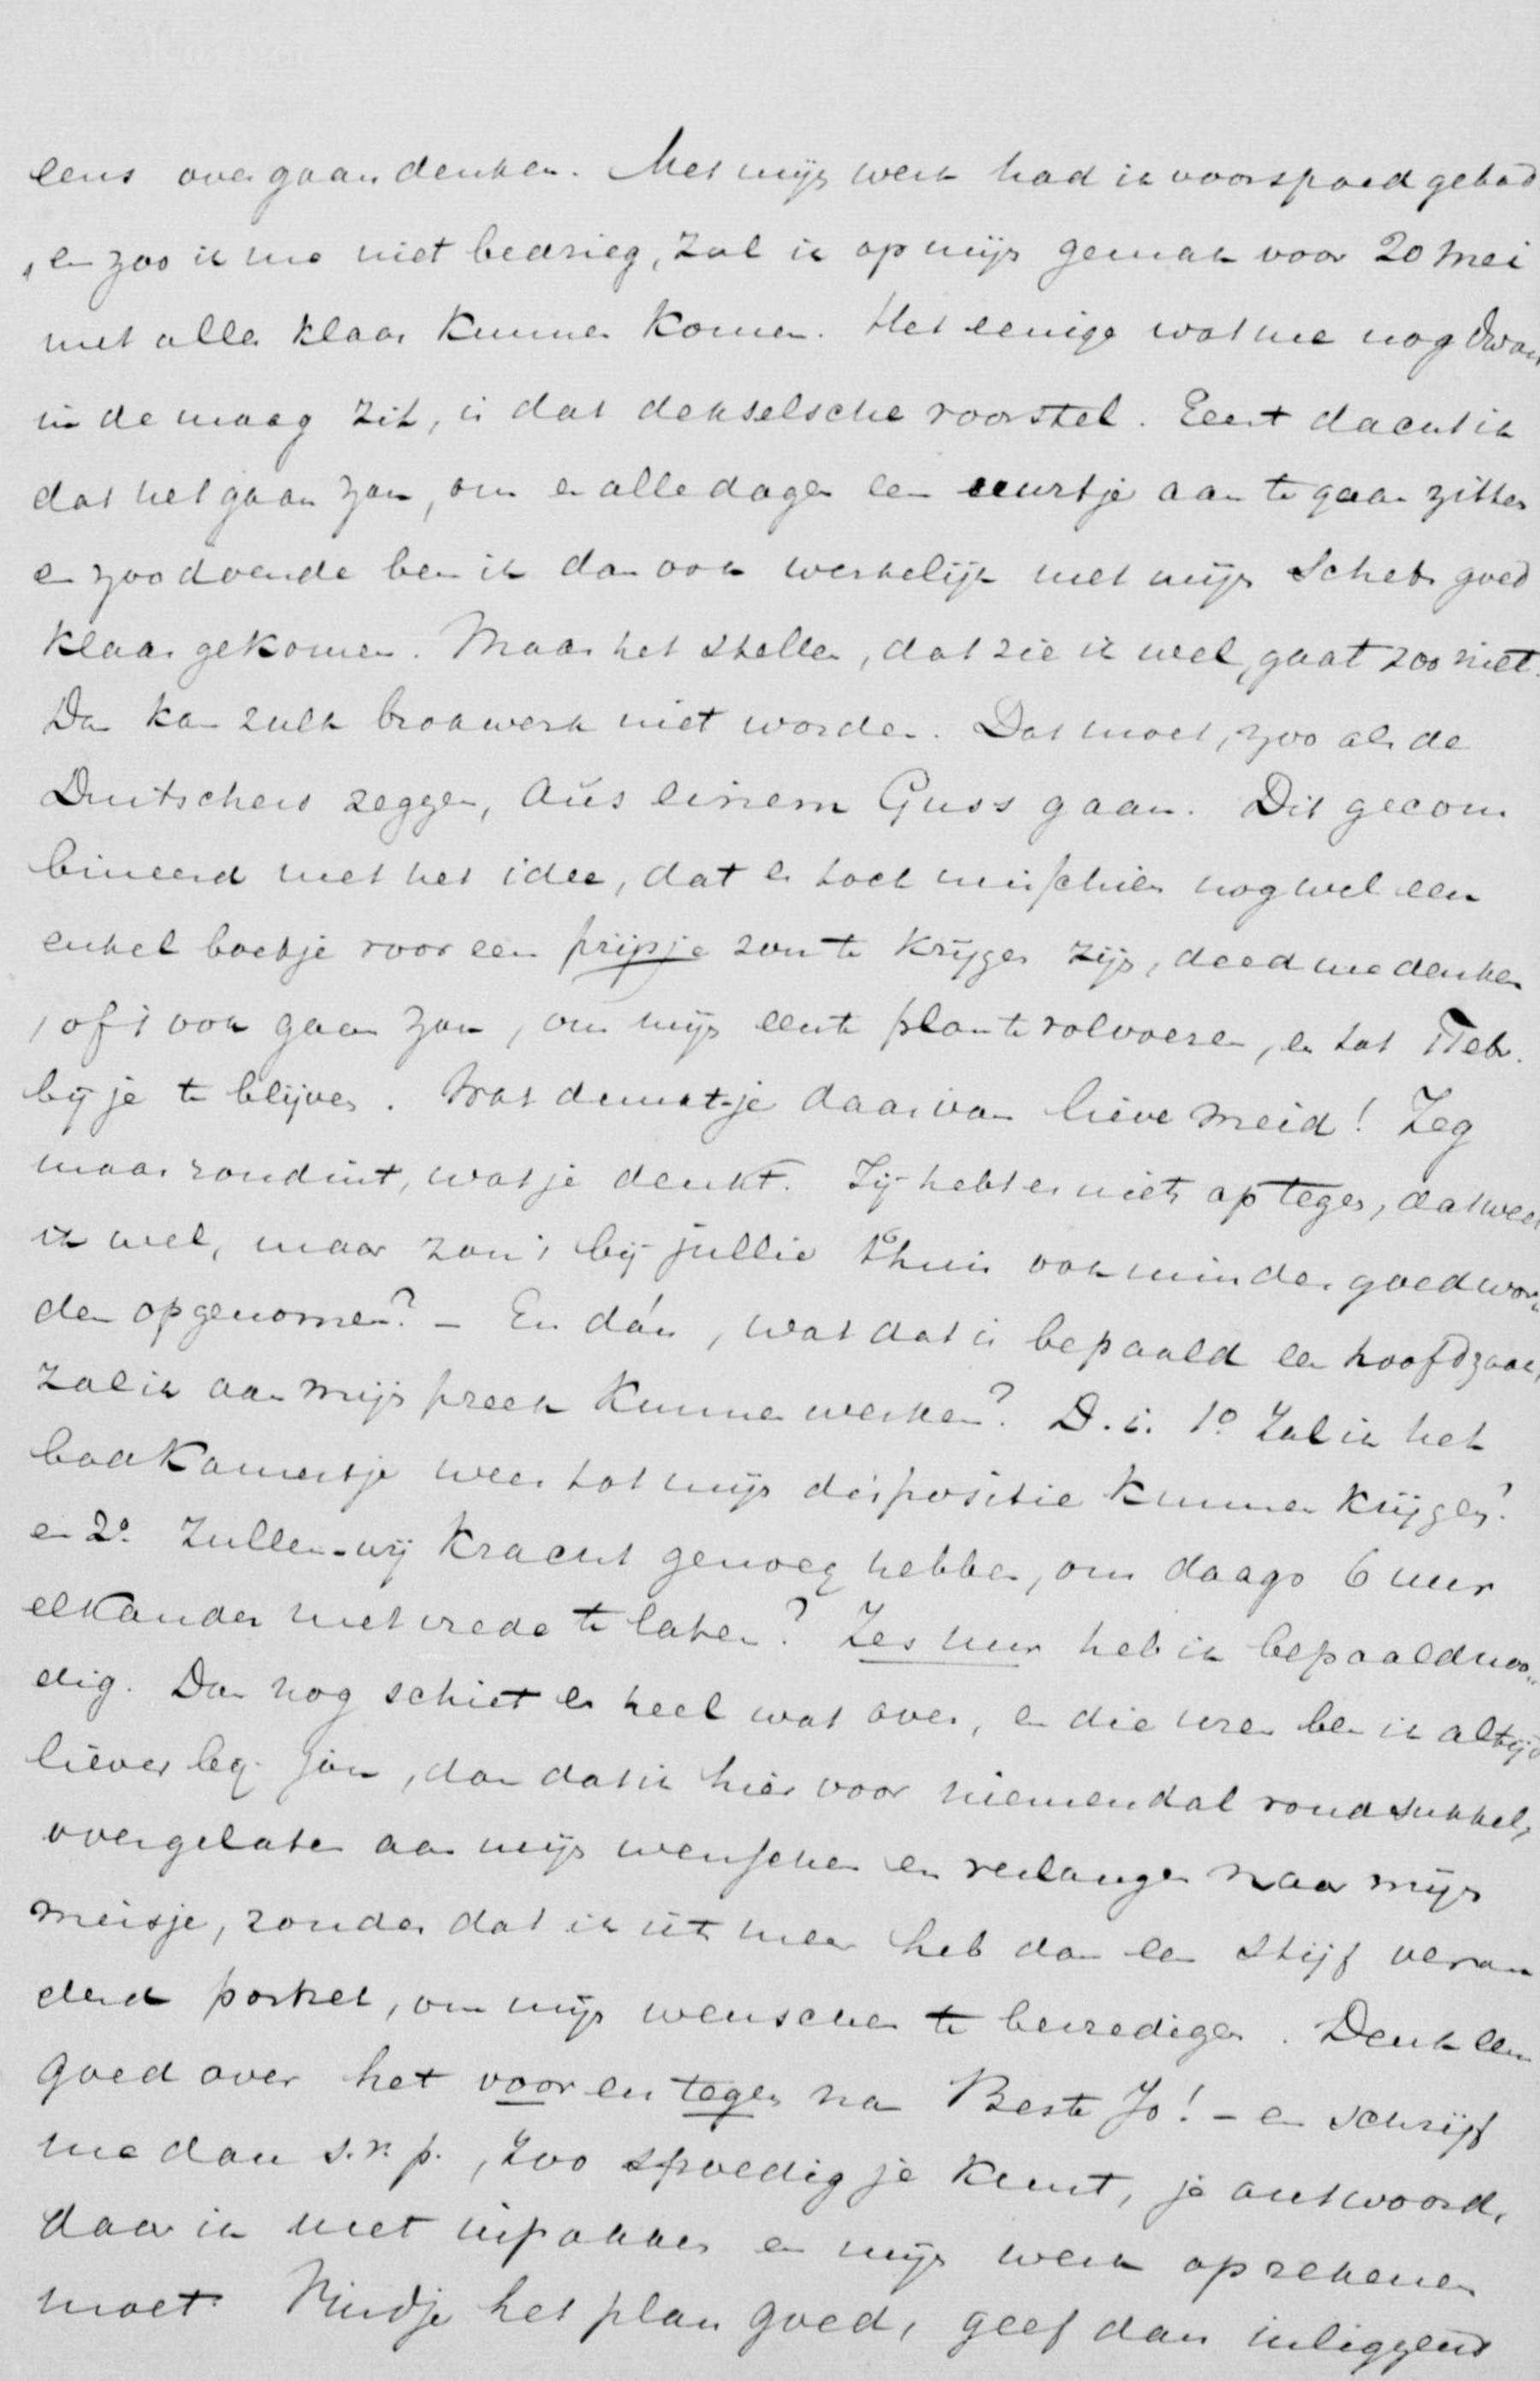 eens over gaan denken. Met mijn werk had ik voorspoed gehad
, en zoo ik me niet bedrieg, zal ik op mijn gemak voor 20 Mei
met alles klaar kunnen komen. Het eenige wat me nog dwars
in de maag zit, is dat dekselsche voorstel. Eerst dacht ik
dat het gaan zou, om er alle dagen een uurtje aan te gaan zitten
en zoodoende ben ik dan ook werkelijk met mijn Schets goed
klaar gekomen. Maar het stellen, dat zie ik wel, gaat zoo niet.
Dan kan zulk brokwerk niet worden. Dat moet, zoo als de
Duitschers zeggen, aus einem Guss gaan. Dit gecom
bineerd met het idee, dat er toch misschien nog wel een
enkel boekje voor een prijsje zou te krijgen zijn, deed me denken
, of 't ook gaan zou, om mijn eerste plan te volvoeren, en tot Feb.
bij je te blijven. Wat denk-je daarvan lieve meid! Zeg
maar ronduit, wat je denkt. Jij hebt er niets op tegen, dat weet
ik wel, maar zou 't bij jullie thuis ook minder goed wor
den opgenomen? – En dán, wat dat is bepaald een hoofdzaak,
zal ik aan mijn preek kunnen werken? D.i. 1º zal ik het
kamertje weer tot mijn dispositie kunnen krijgen?
en 2º. zullen wij kracht genoeg hebben, om daags 6 uur
elkander met vrede te laten? Zes uur heb ik bepaald noo
dig. Dan nog schiet er heel wat over, en die uren ben ik altijd
liever bij jou, dan dat ik hier voor niemendal rondsukkel,
overgelaten aan mijn wenschen en verlangen naar mijn
meisje, zonder dat ik iets meer heb dan een stijf veran
derd portret, om mijn wenschen te bevredigen. Denk eens
goed over het voor en tegen na Beste Jo! – en schrijf
me dan s.v.p., zoo spoedig je kunt, je antwoord,
daar ik met inpakken en mijn werk op rekenen
moet. Vindje het plan goed, geef dan inliggend